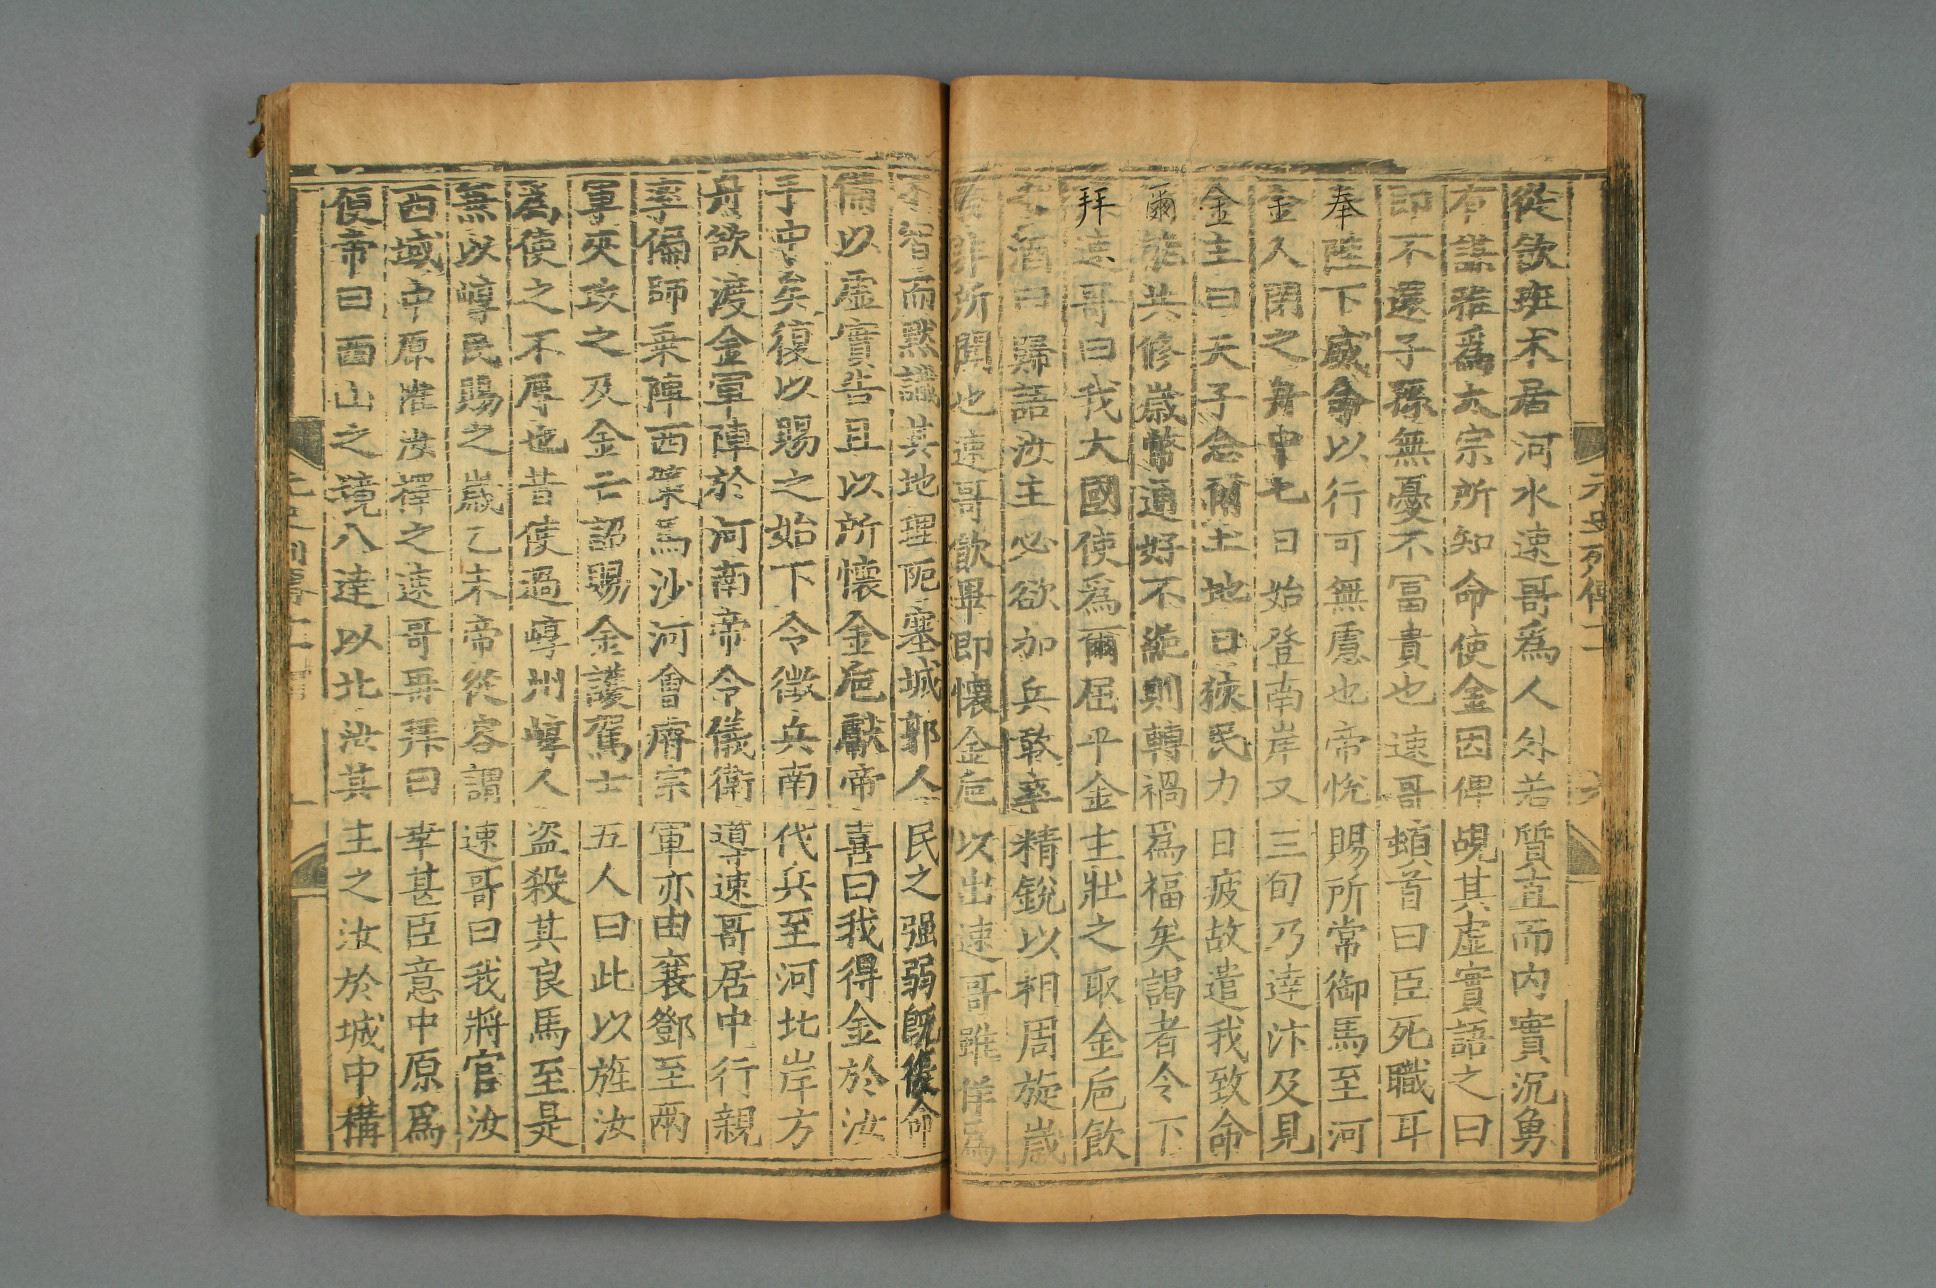 從飲班朮居河水速哥爲人外若質直而內實沉勇
有謀雅爲太宗所知命使金因俾覘其虛實語之曰
即不還子孫無憂不冨貴也速哥頓首曰臣死職耳
奉陛下威命以行可無慮也帝悅賜所常御馬至河
金人閉之舟中七日始登南岸又三旬乃達汴及見
金主曰天子念爾土地日狹民力日疲故遣我致命
爾能共修歲幣通好不絕則轉禍爲福矣謁者令下
拜速哥曰我大國使爲爾屈乎金主壯之取金卮飲
之酒曰歸語汝主必欲加兵敢率精銳以相周旋歲
幣非所聞也速哥飲畢即懷金卮以出速哥雖佯爲
不智而黙識其地理阨塞城郭人民之强弱旣復命
備以虛實告且以所懷金卮獻帝喜曰我得金於汝
手中矣復以賜之始下令徵兵南代兵至河北岸方
舟欲渡金軍陣於河南帝令儀衛導速哥居中行親
率偏師乗陣西策馬沙河會睿宗軍亦由襄鄧至兩
軍夾攻之及金亡詔賜金護駕士五人曰此以旌汝
爲使之不辱也昔使過崞州崞人盗殺其良馬至是
無以崞民賜之歲乙未帝從容謂速哥曰我將官汝
西域中原惟汝擇之速哥再拜曰幸甚臣意中原爲
便帝曰西山之境八達以北汝其主之汝於城中構
元史列傳十一